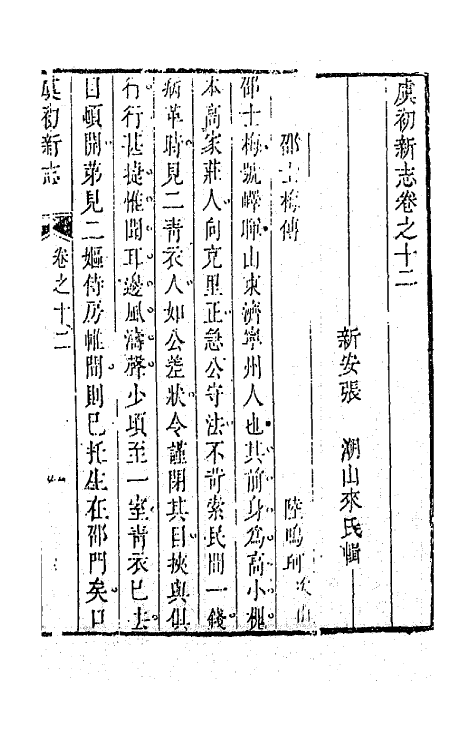 虞初新志卷之十二
新安張 潮山來氏輯
邵士梅傳 陸鳴珂次山
邵士梅號嶧暉山東濟寧州人也其前身為高小槐
本高家莊人向充里正急公守法不苛索民間一錢
病革時見二青衣人如公差狀令謹閉其目挾與俱
行行甚捷惟聞耳邊風濤聲少頃至一室青衣已去
目頓開第見二嫗侍房帷間則已托生在邵門矣口
虞初新志 卷之十二 一